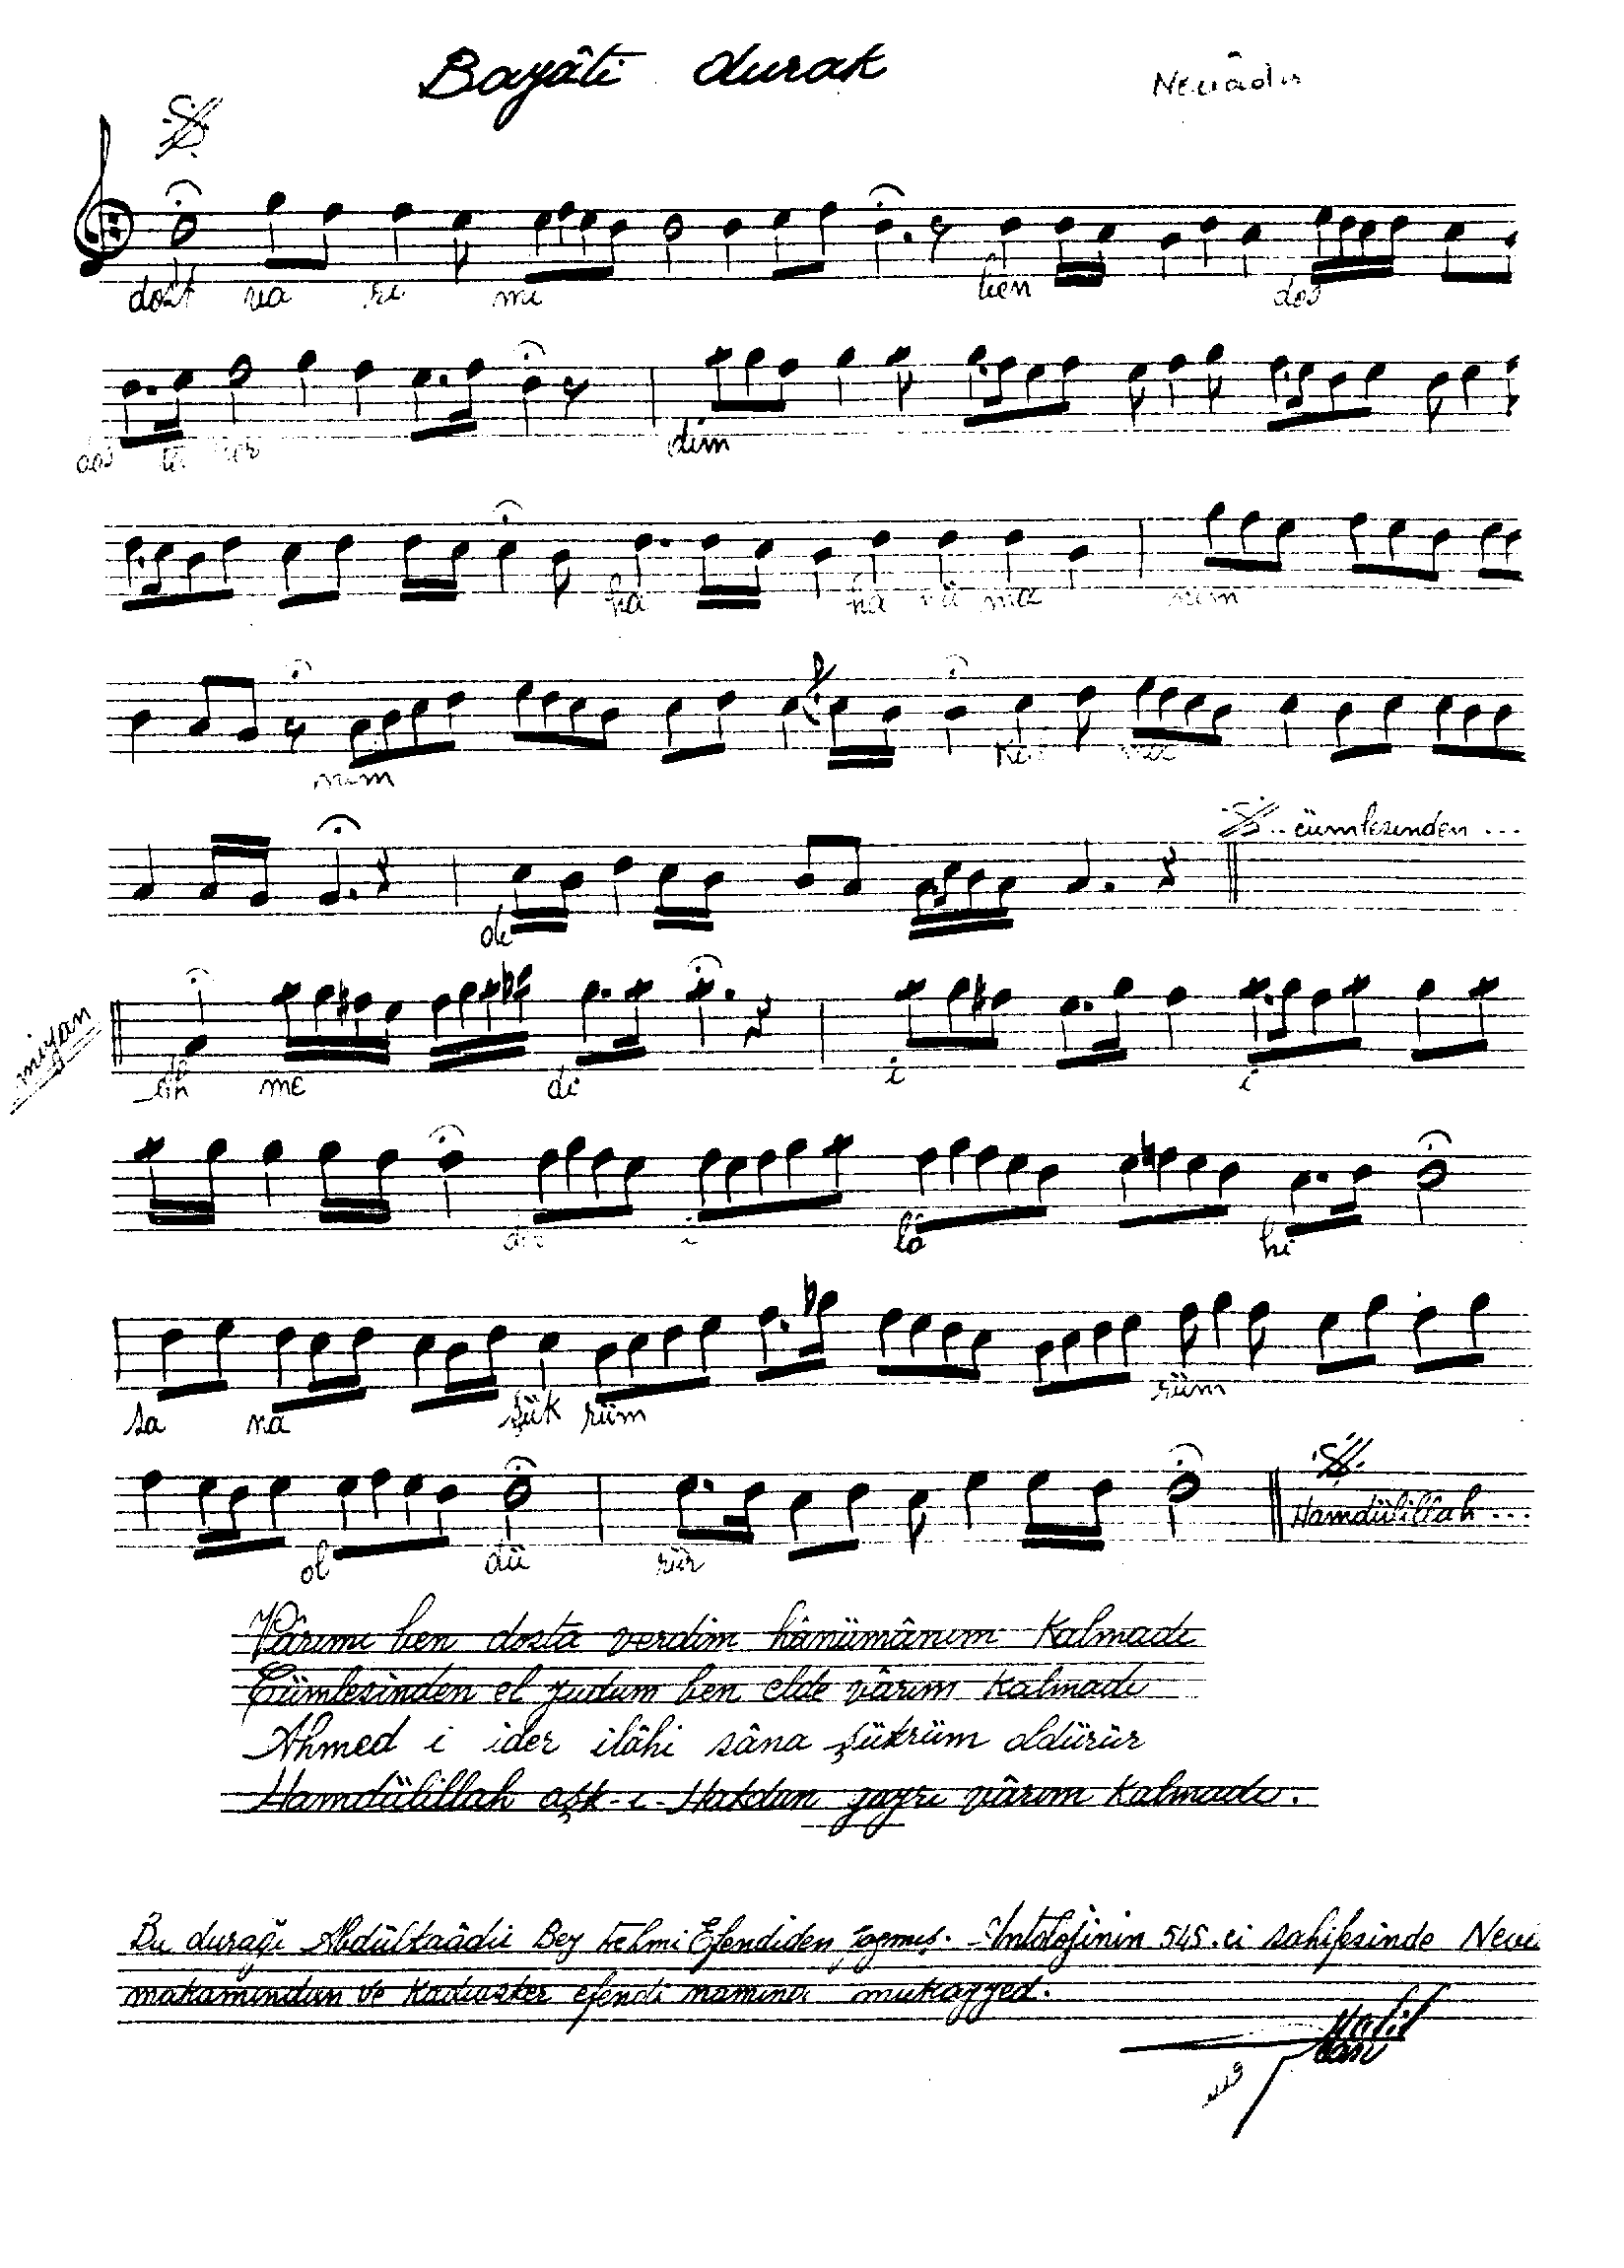 Bayâti durak
dost va ri mi ben dos
dos ta ver dim
ha hâ nü mâ nım
nım Kal ma
dı
.. cümlesinden ...
miyan
ah me di i i
der i lâ hi
sa na şük rüm rüm
ol dü rür
Hamdülillah ...
Vârımı ben dosta verdim hânümânım Kalmadı
Cümlesinden el yudum ben elde vârım Kalmadı
Ahmed i ider ilâhi sâna şükrüm oldürür
Hamdülillah aşk-ı-Hakdan gayrı vârım Kalmadı.
Bu durağı Bey Fehmi Efendiden yazmış. Antolojinin 545.ci sahifesinde
makamından ve Kadıasker efendi namına mukayyed.
Halil
Can